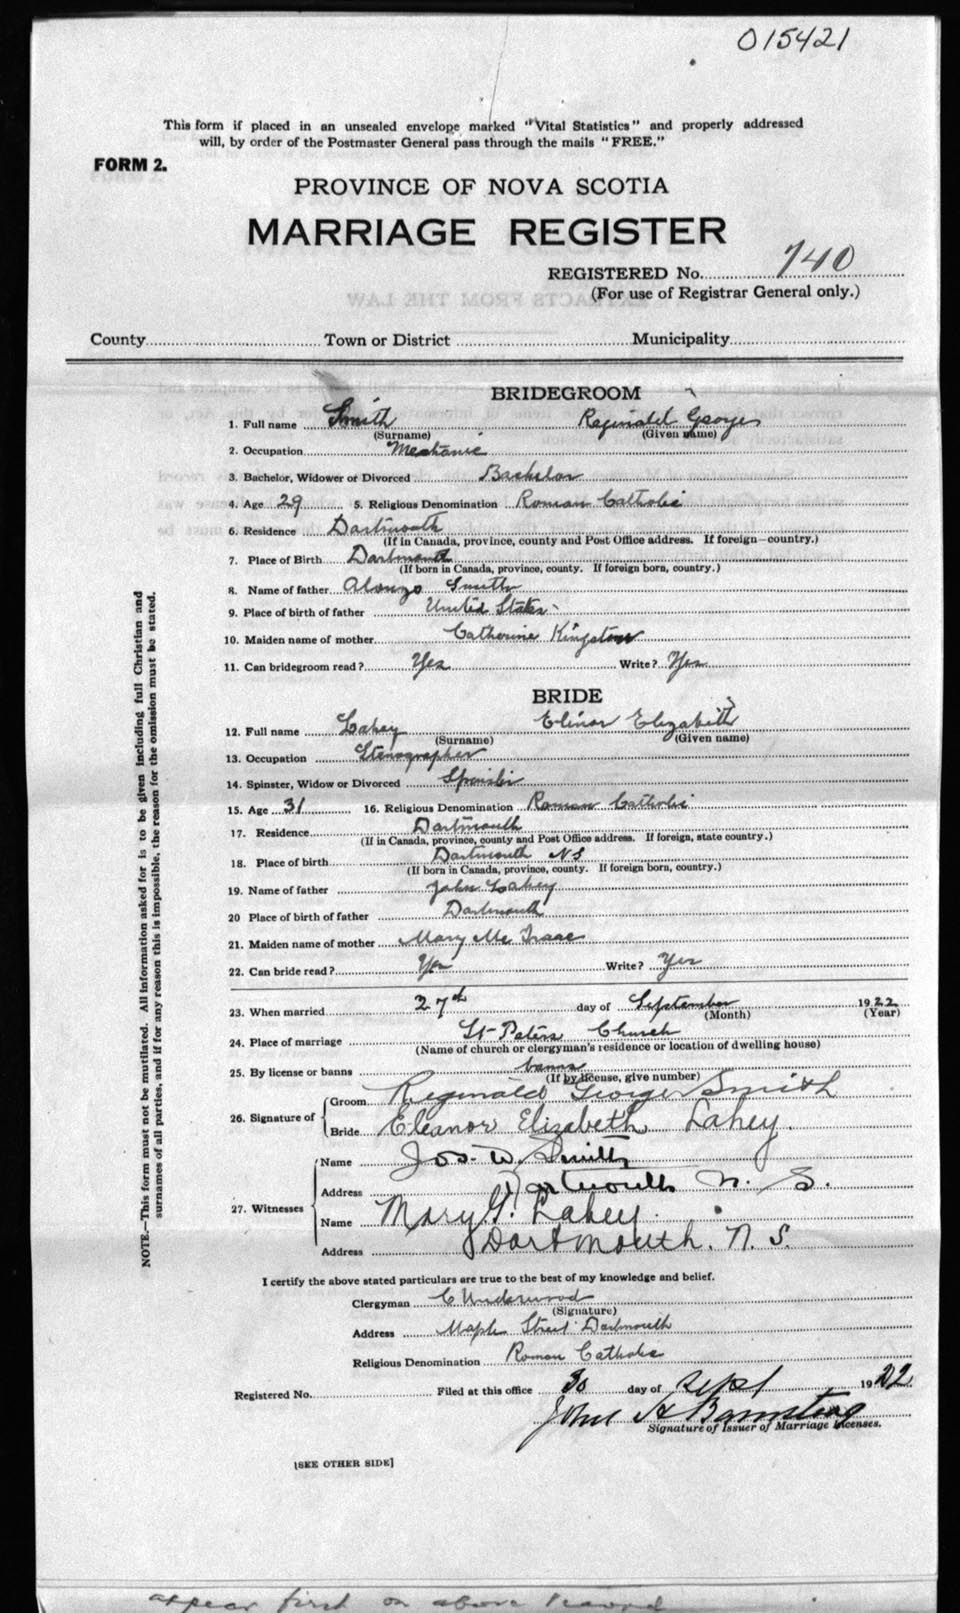 015421
This form if placed in an unsealed envelope marked "Vital Statistics" and properly addressed
will, by order of the Postmaster General pass through the mails "FREE."
FORM 2.
PROVINCE OF NOVA SCOTIA
MARRIAGE REGISTER
REGISTERED No. 740
(For use of Registrar General only.)
County Town or District Municipality
BRIDEGROOM
1. Full name Smith Reginald George
(Surname) (Given name)
2. Occupation Mechanic
3. Bachelor, Widower or Divorced Bachelor
4. Age 29 5. Religious Denomination Roman Catholic
6. Residence Dartmouth
(If in Canada, province, county and Post Office address. If foreign—country.)
7. Place of Birth Dartmouth
(If born in Canada, province, county. If foreign born, country.)
8. Name of father Alonzo Smith
9. Place of birth of father United States
10. Maiden name of mother Catherine Kingston
11. Can bridegroom read? Yes Write? Yes
BRIDE
12. Full name Lahey Elinor Elizabeth
(Surname) (Given name)
13. Occupation Stenographer
14. Spinster, Widow or Divorced Spinster
15. Age 31 16. Religious Denomination Roman Catholic
17. Residence Dartmouth
(If in Canada, province, county and Post Office address. If foreign, state country.)
18. Place of birth Dartmouth NS
(If born in Canada, province, county. If foreign born, country.)
19. Name of father John Lahey
20 Place of birth of father Dartmouth
21. Maiden name of mother Mary Mc Isaac
22. Can bride read? Yes Write? Yes
23. When married 27th day of September 1922
(Month) (Year)
24. Place of marriage St Peters Church
(Name of church or clergyman's residence or location of dwelling house)
25. By license or banns banns
(If by license, give number)
26. Signature of Groom Reginald George Smith
Bride Eleanor Elizabeth Lahey.
27. Witnesses Name Jos. W. Smith
Address Dartmouth N. S.
Name Mary G. Lahey.
Address Dartmouth. N. S.
I certify the above stated particulars are true to the best of my knowledge and belief.
Clergyman C Underwood
(Signature)
Address Maple Street Dartmouth
Religious Denomination Roman Catholic
Registered No. Filed at this office 30 day of Sept 1922
John A
Signature of Issuer of Marriage Licenses.
[SEE OTHER SIDE]
NOTE.—This form must not be mutilated. All information asked for is to be given including full Christian and
surnames of all parties, and if for any reason this is impossible, the reason for the omission must be stated.
appear first on above record